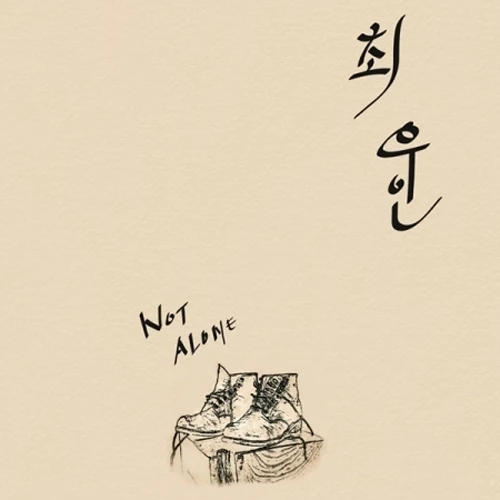 최
우인
NOT
ALONE